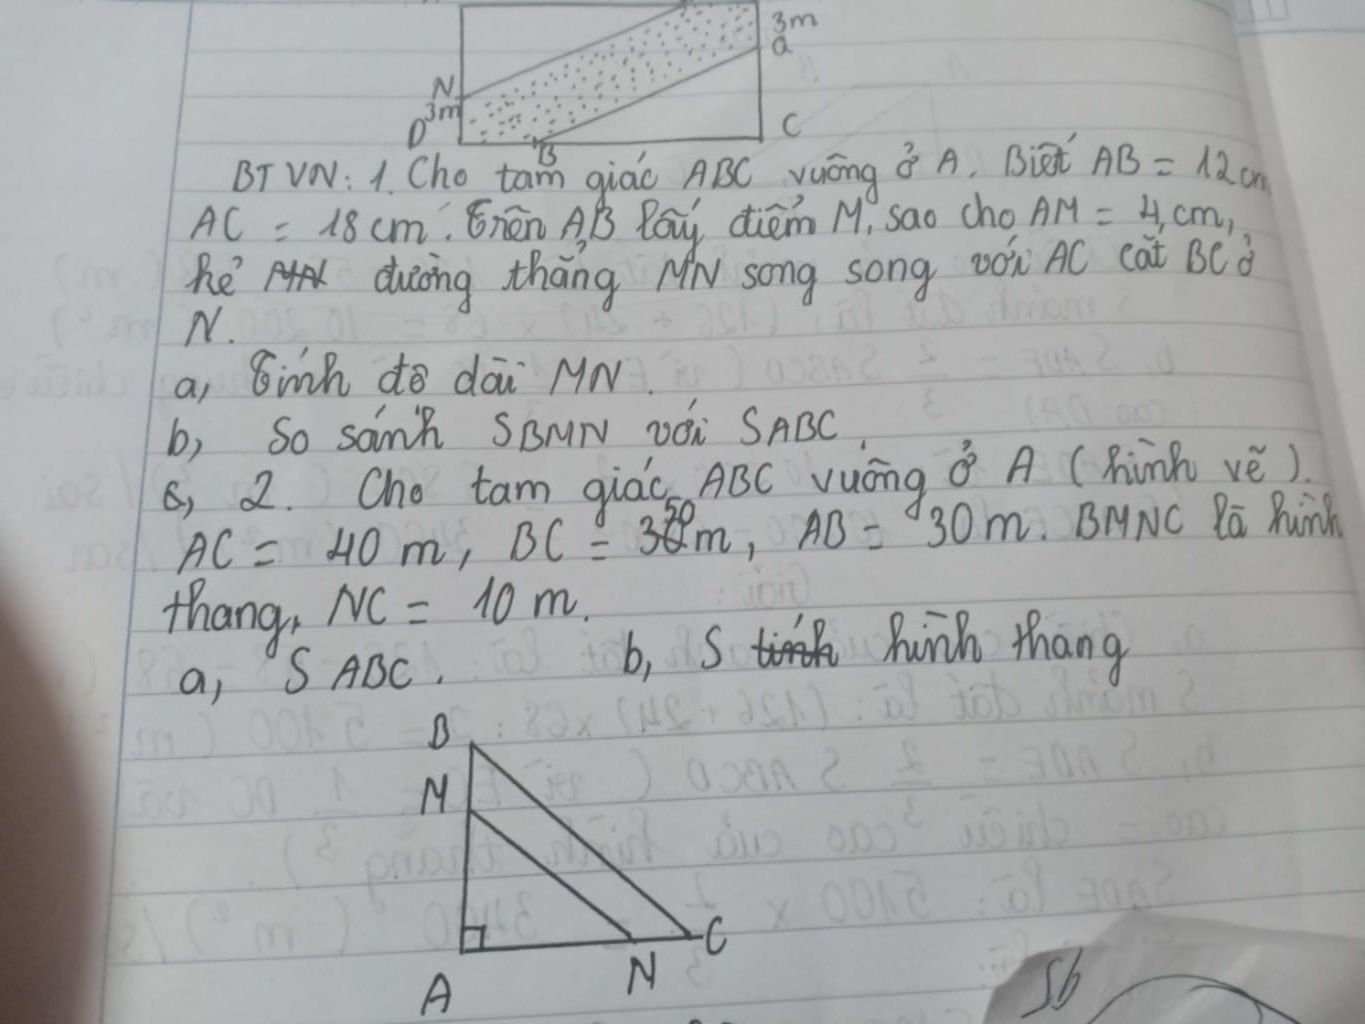 3m
Q
N
3m
D
B
C
BTVN: 1. Cho tam giác ABC vuông ở A. Biết AB = 12cm
AC = 18 cm. Trên AB lấy điểm M, sao cho AM = 4 cm,
kẻ đường thẳng MN song song với AC cắt BC ở
N.
a, Tính độ dài MN.
b, So sánh SBMN với SABC.
2. Cho tam giác ABC vuông ở A (hình vẽ).
AC = 40 m, BC = 50 m, AB = 30 m. BMNC là hình
thang, NC = 10 m.
a, S ABC. b, S hình thang
B
M
A
N
C
Sb